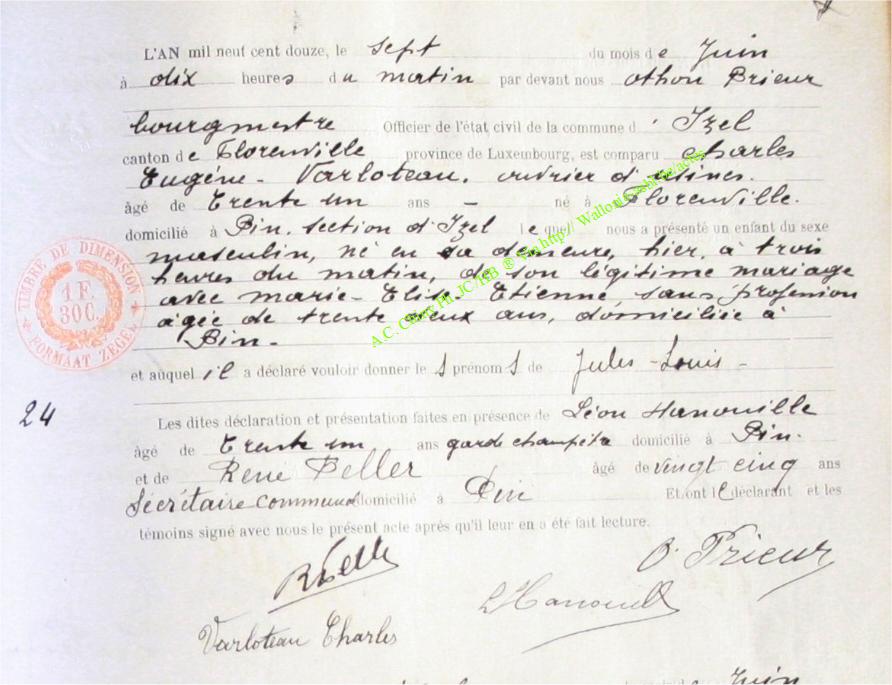 L'AN mil neuf cent douze, le sept du mois de Juin
à dix heures du matin par devant nous Othon Prieur
bourgmestre Officier de l'état civil de la commune d' Izel
canton de Florenville province de Luxembourg, est comparu Charles
Eugène - Varloteau. ouvrier d'usines.
âgé de Trente un ans - né à Florenville.
domicilié à Pin. section d'Izel le quel nous a présenté un enfant du sexe
masculin, né en sa demeure, hier, à trois
heures du matin, de son légitime mariage
avec Marie - Elise - Etienne, sans profession
âgée de trente deux ans, domiciliée à
Pin -
et auquel il a déclaré vouloir donner les prénoms de Jules - Louis -
24
Les dites déclaration et présentation faites en présence de Léon Hanouille
âgé de Trente un ans garde champêtre domicilié à Pin.
et de René Peller âgé de vingt cinq ans
Secrétaire communal domicilié à Pin Et ont le déclarant et les
témoins signé avec nous le présent acte après qu'il leur en a été fait lecture.
O. Prieur
L Hanouille
Varloteau Charles
Juin
TIMBRE DE DIMENSION
1 F.
30C.
FORMAAT ZEGEL